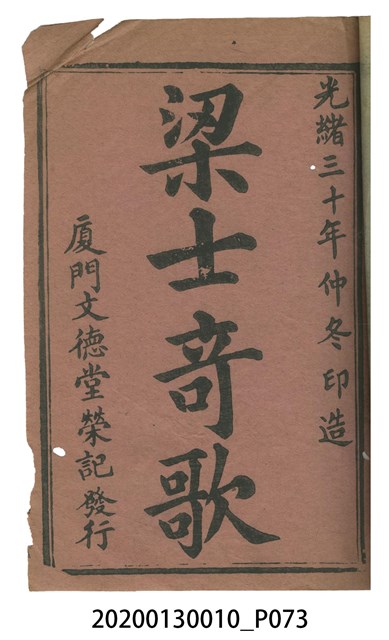 光緒三十年仲冬印造
梁士竒歌
廈門文德堂榮記發行
20200130010_P073